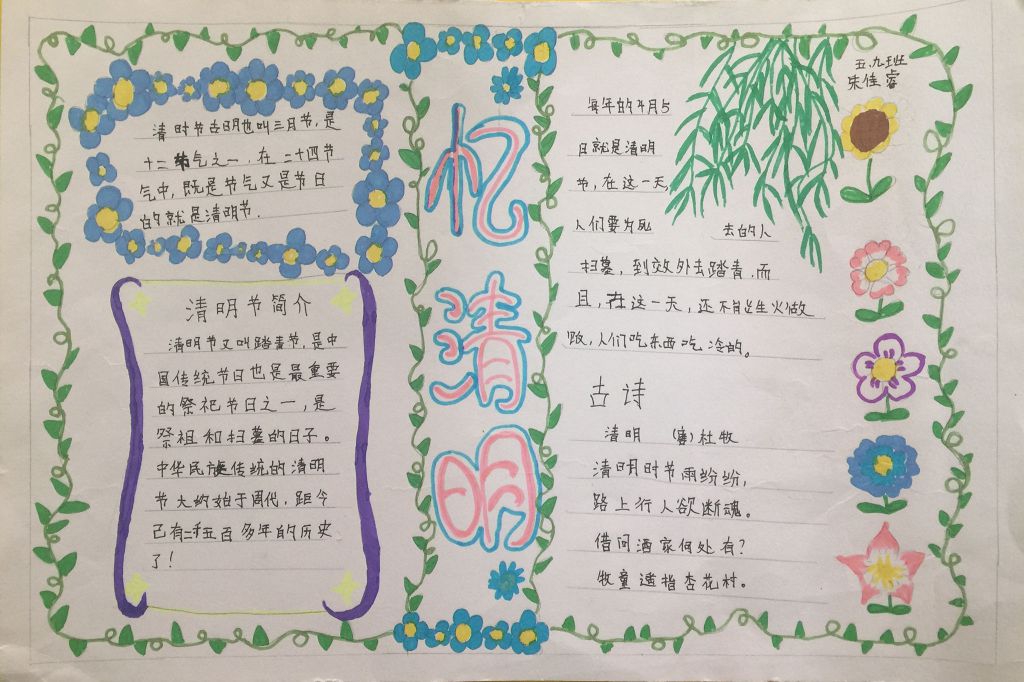 清时节古明也叫三月节,是
十二节气之一,在二十四节
气中,既是节气又是节日
的就是清明节.
清明节简介
清明节又叫踏青节,是中
国传统节日也是最重要
的祭祀节日之一,是
祭祖和扫墓的日子。
中华民族传统的清明
节大约始于周代,距今
已有二千五百多年的历史
了!
忆清明
五.九班
朱佳睿
每年的4月5
日就是清明
节,在这一天,
人们要为死 去的人
扫墓,到效外去踏青,而
且,在这一天,还不能生火做
饭,人们吃东西吃冷的。
古诗
清明 (唐)杜牧
清明时节雨纷纷,
路上行人欲断魂。
借问酒家何处有?
牧童遥指杏花村。